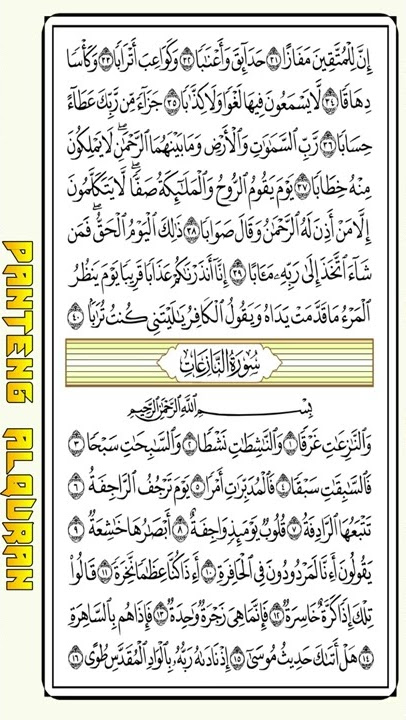 إِنَّ لِلْمُتَّقِينَ مَفَازًا ٣١ حَدَائِقَ وَأَعْنَابًا ٣٢ وَكَوَاعِبَ أَتْرَابًا ٣٣ وَكَأْسًا
دِهَاقًا ٣٤ لَّا يَسْمَعُونَ فِيهَا لَغْوًا وَلَا كِذَّابًا ٣٥ جَزَاءً مِّن رَّبِّكَ عَطَاءً
حِسَابًا ٣٦ رَّبِّ السَّمَٰوَٰتِ وَالْأَرْضِ وَمَا بَيْنَهُمَا الرَّحْمَٰنِ ۖ لَا يَمْلِكُونَ
مِنْهُ خِطَابًا ٣٧ يَوْمَ يَقُومُ الرُّوحُ وَالْمَلَٰئِكَةُ صَفًّا ۖ لَّا يَتَكَلَّمُونَ
إِلَّا مَنْ أَذِنَ لَهُ الرَّحْمَٰنُ وَقَالَ صَوَابًا ٣٨ ذَٰلِكَ الْيَوْمُ الْحَقُّ ۖ فَمَن
شَاءَ اتَّخَذَ إِلَىٰ رَبِّهِ مَـَٔابًا ٣٩ إِنَّا أَنذَرْنَٰكُمْ عَذَابًا قَرِيبًا يَوْمَ يَنظُرُ
الْمَرْءُ مَا قَدَّمَتْ يَدَاهُ وَيَقُولُ الْكَافِرُ يَٰلَيْتَنِي كُنتُ تُرَٰبًا ٤٠
سُورَةُ النَّازِعَاتِ
بِسْمِ اللَّهِ الرَّحْمَٰنِ الرَّحِيمِ
وَالنَّٰزِعَٰتِ غَرْقًا ١ وَالنَّٰشِطَٰتِ نَشْطًا ٢ وَالسَّٰبِحَٰتِ سَبْحًا ٣
فَالسَّٰبِقَٰتِ سَبْقًا ٤ فَالْمُدَبِّرَٰتِ أَمْرًا ٥ يَوْمَ تَرْجُفُ الرَّاجِفَةُ ٦
تَتْبَعُهَا الرَّادِفَةُ ٧ قُلُوبٌ يَوْمَئِذٍ وَاجِفَةٌ ٨ أَبْصَٰرُهَا خَٰشِعَةٌ ٩
يَقُولُونَ أَءِنَّا لَمَرْدُودُونَ فِي الْحَافِرَةِ ١٠ أَءِذَا كُنَّا عِظَٰمًا نَّخِرَةً ١١ قَالُوا
تِلْكَ إِذًا كَرَّةٌ خَاسِرَةٌ ١٢ فَإِنَّمَا هِيَ زَجْرَةٌ وَٰحِدَةٌ ١٣ فَإِذَا هُم بِالسَّاهِرَةِ
١٤ هَلْ أَتَىٰكَ حَدِيثُ مُوسَىٰ ١٥ إِذْ نَادَىٰهُ رَبُّهُ بِالْوَادِ الْمُقَدَّسِ طُوًى ١٦
PANTENG ALQURAN